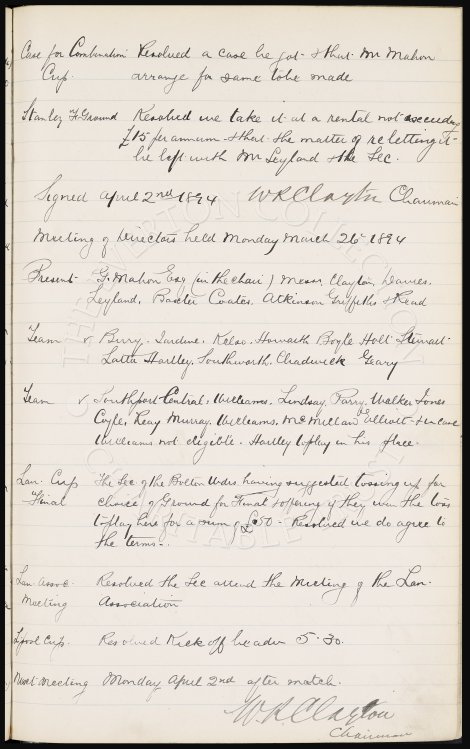 Case for Combination Resolved a case be got & that Mr Mahon
Cup. arrange for same to be made
Stanley F. Ground Resolved we take it at a rental not exceeding
£15 per annum & that the matter of reletting it
be left with Mr Leyland & the Sec.
Signed April 2nd 1894 W R Clayton Chairman
Meeting of Directors held Monday March 26th 1894
Present G. Mahon Esq (in the chair) Messrs Clayton, Davies,
Leyland, Baxter Coates, Atkinson Griffiths & Read
Team v. Bury. Jardine. Kelso. Howarth Boyle Holt Stewart
Latta Hartley, Southworth, Chadwick Geary
Team v Southport Central. Williams, Lindsay, Parry, Walker Jones
Coyle, Reay Murray, Williams, McMillan Elliott & in case
Williams not eligible. Hartley to play in his place.
Lan. Cup The Sec of the Bolton Wdrs. having suggested tossing up for
Final choice of Ground for Final & offering if they won the toss
to play here for a sum of £50 - Resolved we do agree to
the terms -
Lan Assoc. Resolved the Sec attend the Meeting of the Lan.
Meeting Association
L'pool Cup. Resolved Kick off be adv 5.30.
Next Meeting Monday April 2nd after match.
W. R. Clayton
Chairman
THE EVERTON COLLECTION
CHARITABLE TRUST